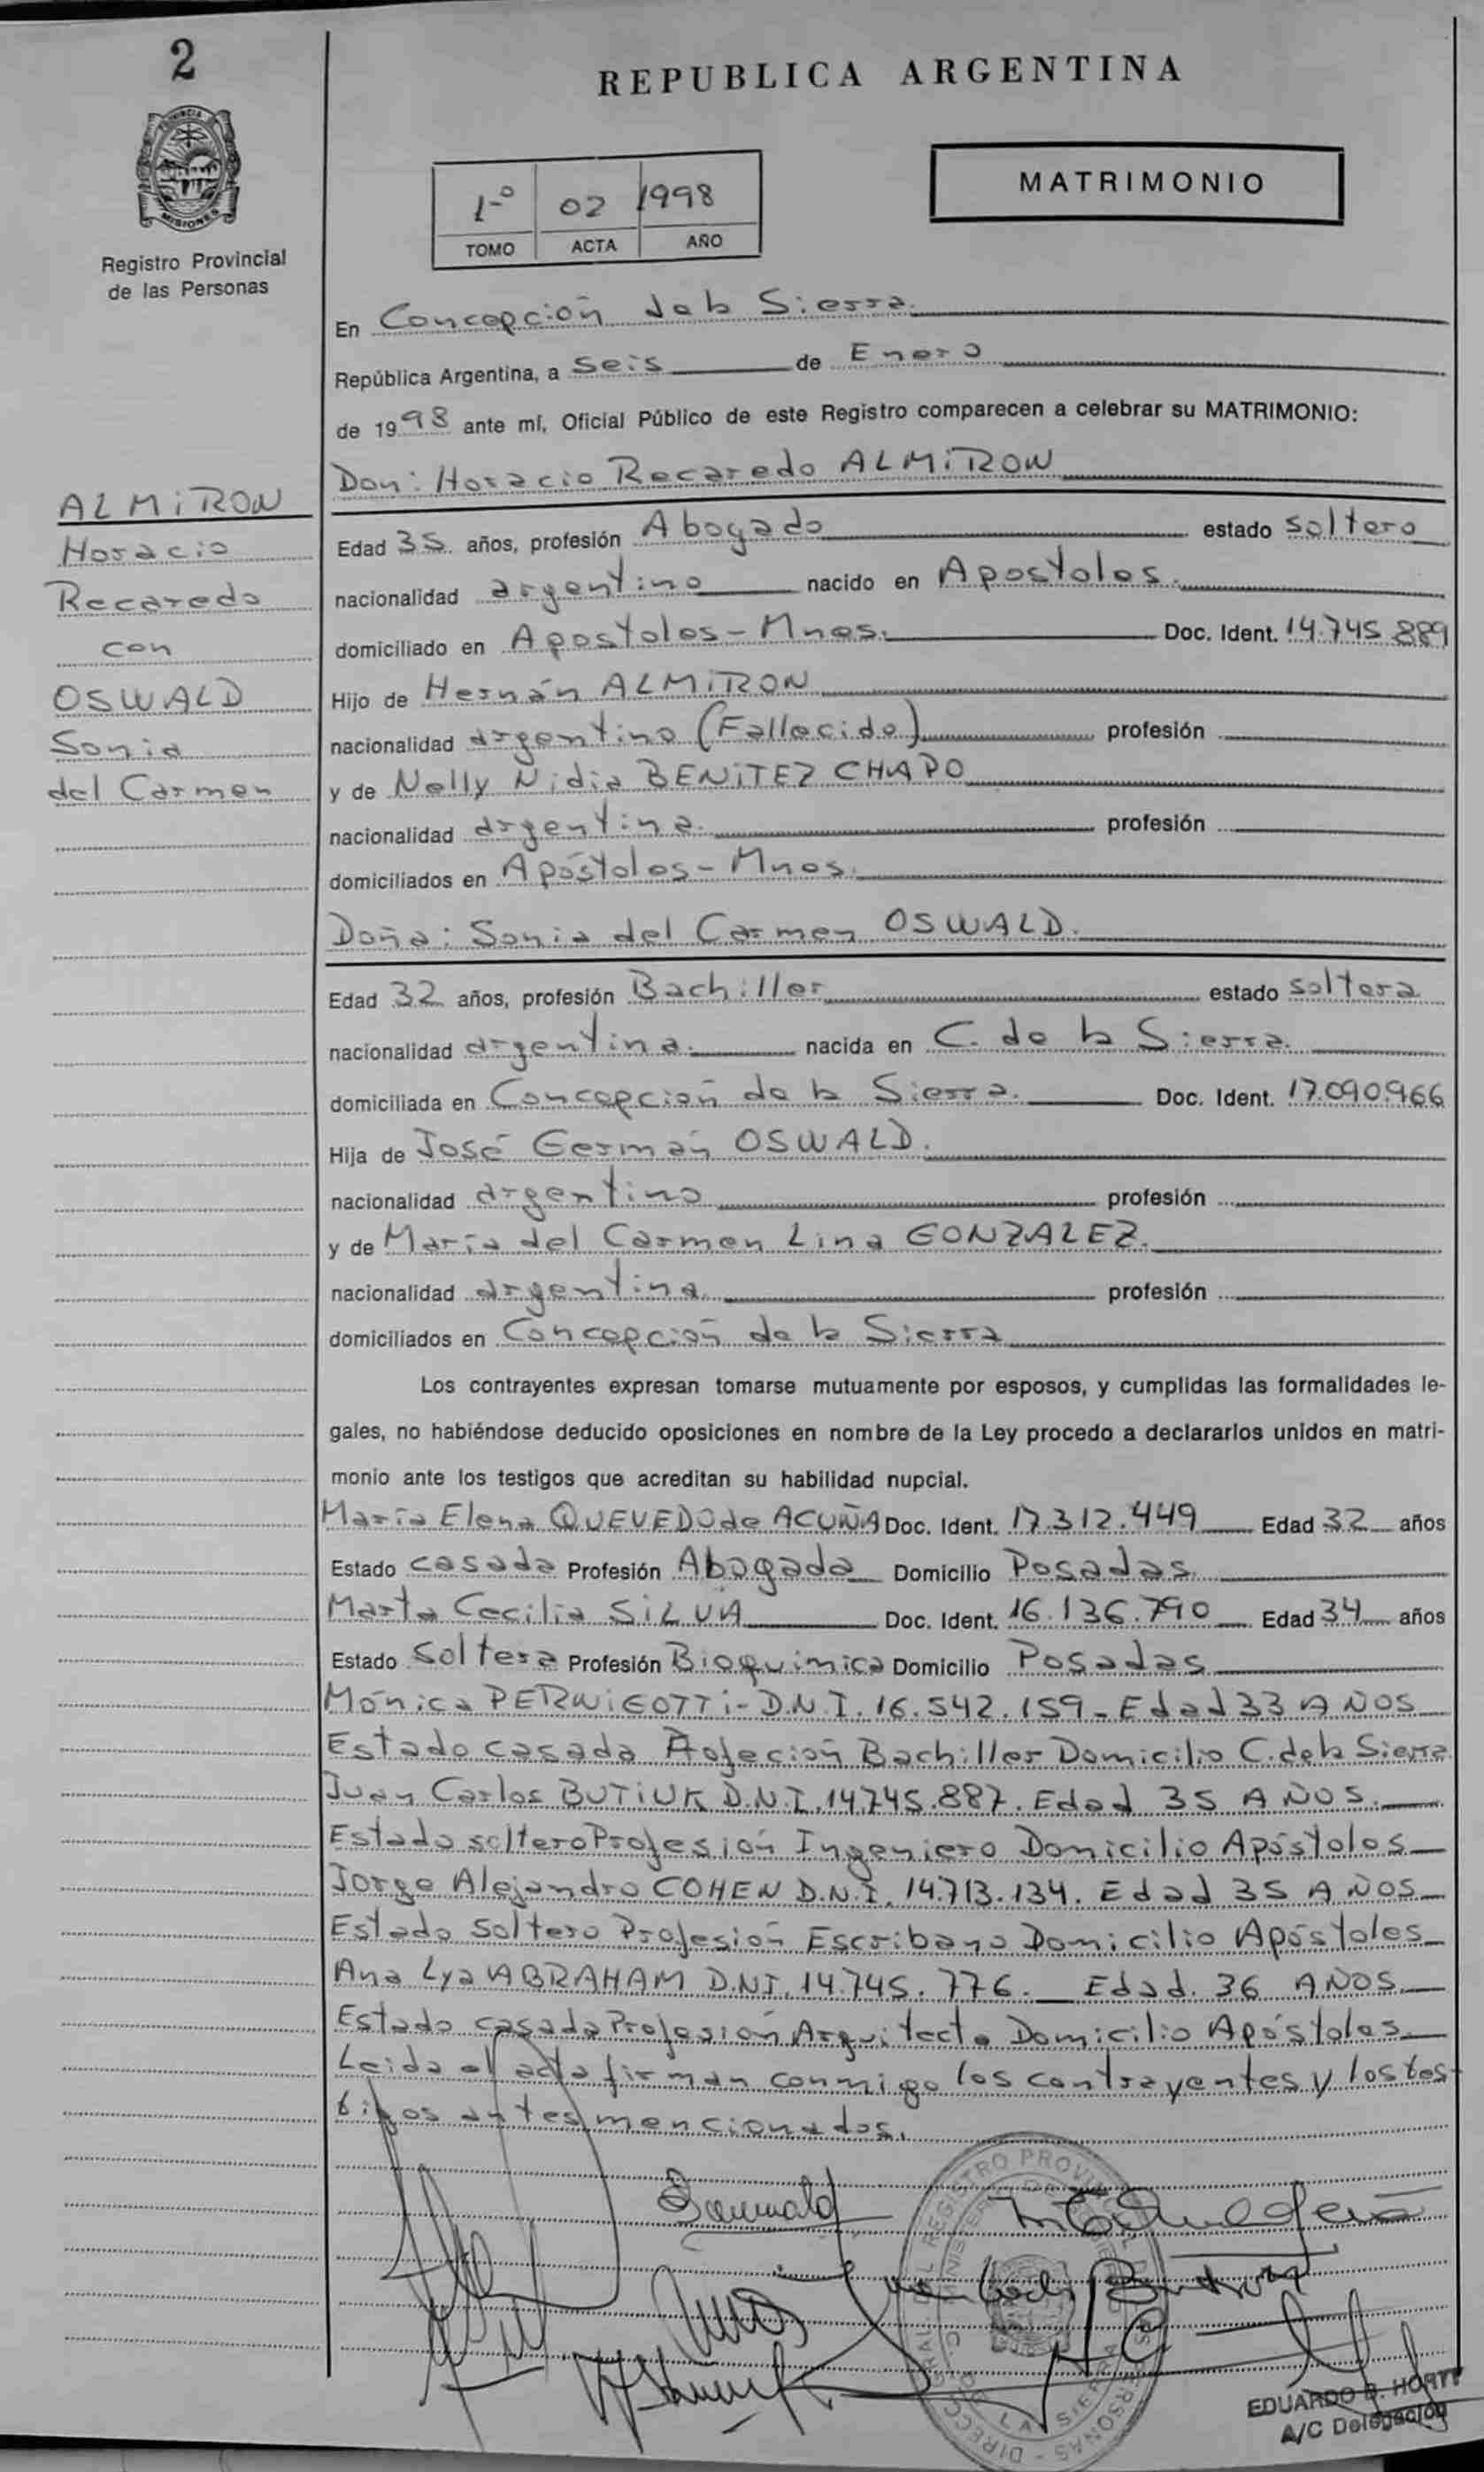 2
REPUBLICA ARGENTINA
PROVINCIA
MISIONES
Registro Provincial
de las Personas
1º 02 1998
TOMO ACTA AÑO
MATRIMONIO
En Concepción de la Sierra.
República Argentina, a Seis de Enero
de 1998 ante mí, Oficial Público de este Registro comparecen a celebrar su MATRIMONIO:
Don: Horacio Recaredo ALMIRON
ALMIRON
Horacio
Recaredo
con
OSWALD
Sonia
del Carmen
Edad 35 años, profesión Abogado estado soltero
nacionalidad argentino nacido en Apostoles.
domiciliado en Apostoles-Mnes. Doc. Ident. 14.745.889
Hijo de Hernán ALMIRON
nacionalidad argentino (Fallecido) profesión
y de Nelly Nidia BENITEZ CHAPO
nacionalidad argentina. profesión
domiciliados en Apóstoles-Mnes.
Doña: Sonia del Carmen OSWALD.
Edad 32 años, profesión Bachiller estado soltera
nacionalidad argentina. nacida en C. de la Sierra.
domiciliada en Concepción de la Sierra. Doc. Ident. 17.090.966
Hija de José Germán OSWALD.
nacionalidad argentino profesión
y de María del Carmen Lina GONZALEZ.
nacionalidad argentina. profesión
domiciliados en Concepción de la Sierra
Los contrayentes expresan tomarse mutuamente por esposos, y cumplidas las formalidades le-
gales, no habiéndose deducido oposiciones en nombre de la Ley procedo a declararlos unidos en matri-
monio ante los testigos que acreditan su habilidad nupcial.
María Elena QUEVEDO de ACUÑA Doc. Ident. 17.312.449 Edad 32 años
Estado casada Profesión Abogada Domicilio Posadas.
Marta Cecilia SILVA Doc. Ident. 16.136.790 Edad 34 años
Estado Soltera Profesión Bioquímica Domicilio Posadas
Mónica PERNIGOTTI-D.N.I. 16.542.159-Edad 33 AÑOS
Estado casada Profeción Bachiller Domicilio C. de la Sierra
Juan Carlos BUTIUK D.N.I. 14.745.887. Edad 35 AÑOS.
Estado soltero Profesión Ingeniero Domicilio Apóstoles
Jorge Alejandro COHEN D.N.I. 14.713.134. Edad 35 AÑOS
Estado Soltero Profesión Escribano Domicilio Apóstoles
Ana Lya ABRAHAM D.N.I. 14.745.776. Edad. 36 AÑOS.
Estado casada Profesión Arquitecta Domicilio Apóstoles
Leida el acta firman conmigo los contrayentes y los tes-
tigos antes mencionados.
EDUARDO B.
A/C Delegación